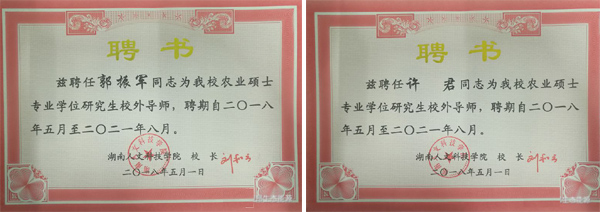 聘书
兹聘任郭振军同志为我校农业硕士
专业学位研究生校外导师，聘期自二〇一八
年五月至二〇二一年八月。
湖南人文科技学院 校 长
二〇一八年五月一日
聘书
兹聘任许 君同志为我校农业硕士
专业学位研究生校外导师，聘期自二〇一八
年五月至二〇二一年八月。
湖南人文科技学院 校 长
二〇一八年五月一日